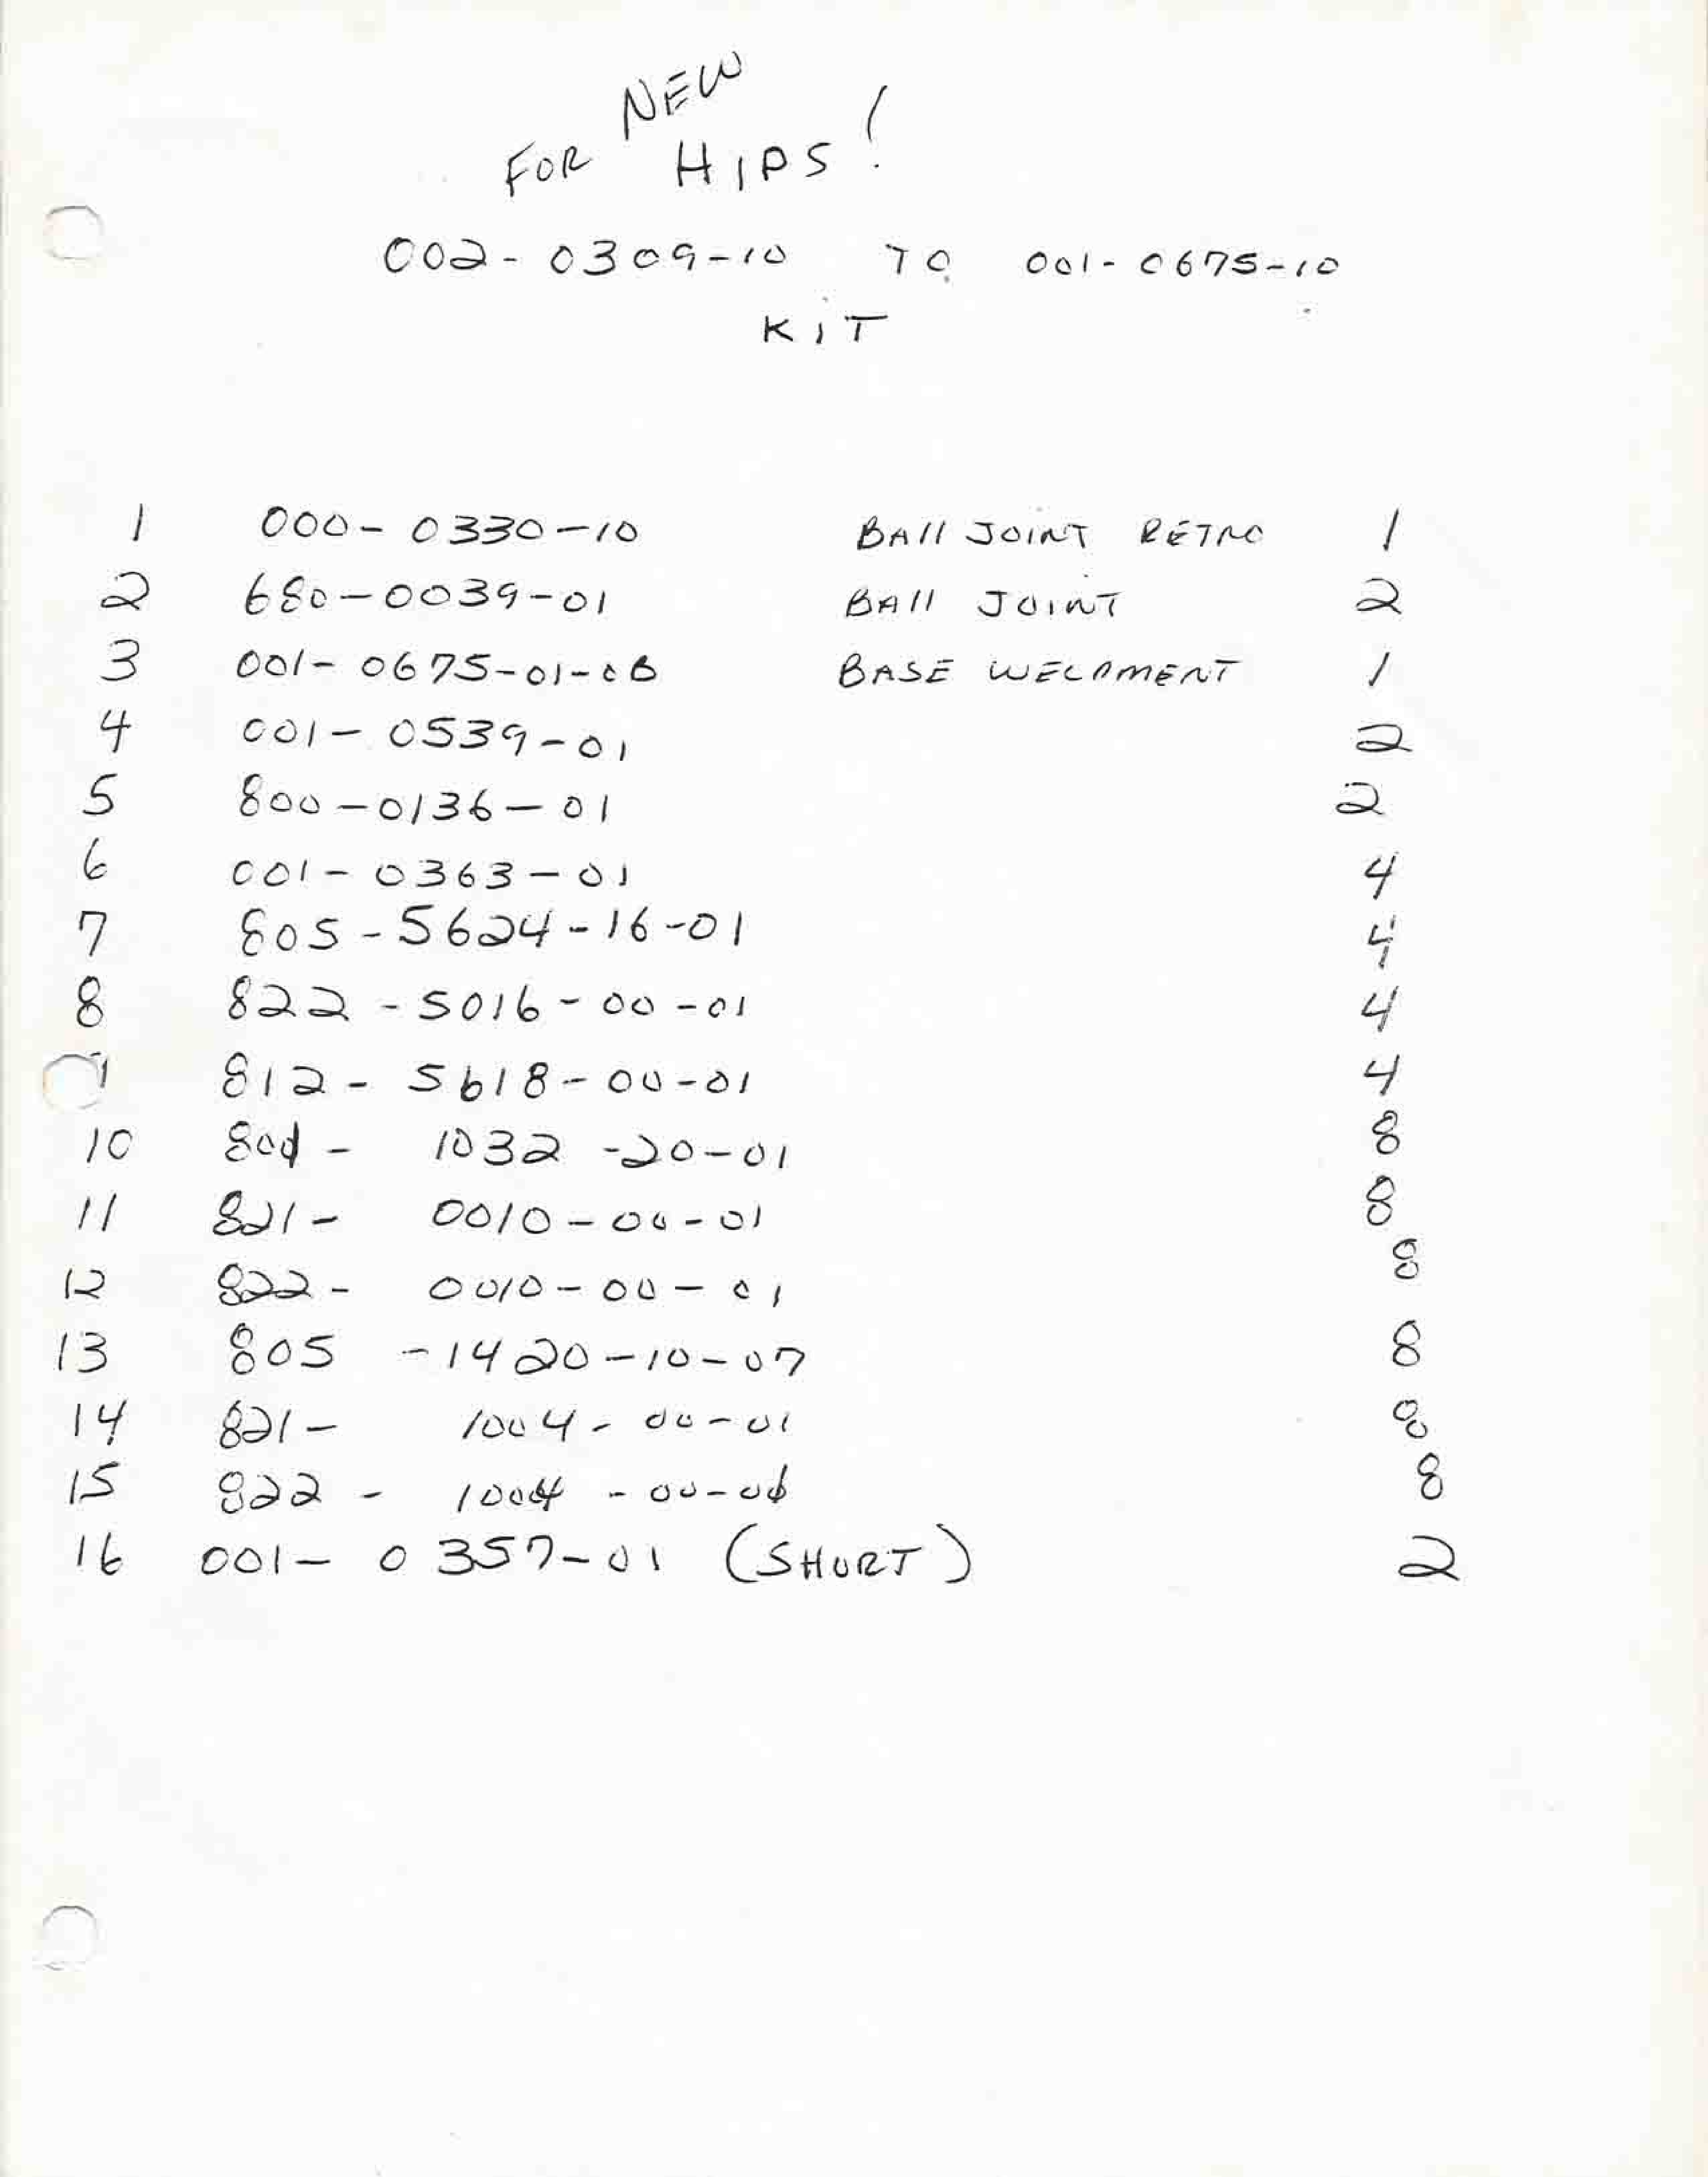 FOR NEW HIPS!
002-0309-10 TO 001-0675-10
KIT
1 000-0330-10 BAll JOINT RETRO 1
2 680-0039-01 BAll JOINT 2
3 001-0675-01-06 BASE WELDMENT 1
4 001-0539-01 2
5 800-0136-01 2
6 001-0363-01 4
7 805-5624-16-01 4
8 822-5016-00-01 4
9 812-5618-00-01 4
10 804-1032-20-01 8
11 821-0010-00-01 8
12 822-0010-00-01 8
13 805-1420-10-07 8
14 821-1004-00-01 8
15 822-1004-00-01 8
16 001-0357-01 (SHORT) 2